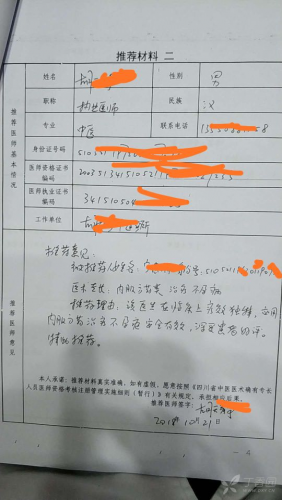 推荐材料 二
姓名 胡 性别 男
职称 执业医师 民族 汉
专业 中医 联系电话
身份证号码
医师资格证书编码
医师执业证书编码 341510504
工作单位
推荐医师基本情况
推荐意见:
被推荐人姓名:
医术专长: 内服方药类 治疗不孕症
推荐理由: 该医生在临床上 疗效独特, 应用
内服方药治疗不孕症安全有效, 深受患者好评。
特此推荐。
推荐医师意见
本人承诺:推荐材料真实准确,如有虚假,愿意按照《四川省中医医术确有专长
人员医师资格考核注册管理实施细则(暂行)》有关规定,承担相应后果。
推荐医师签字:
2018年10月21日